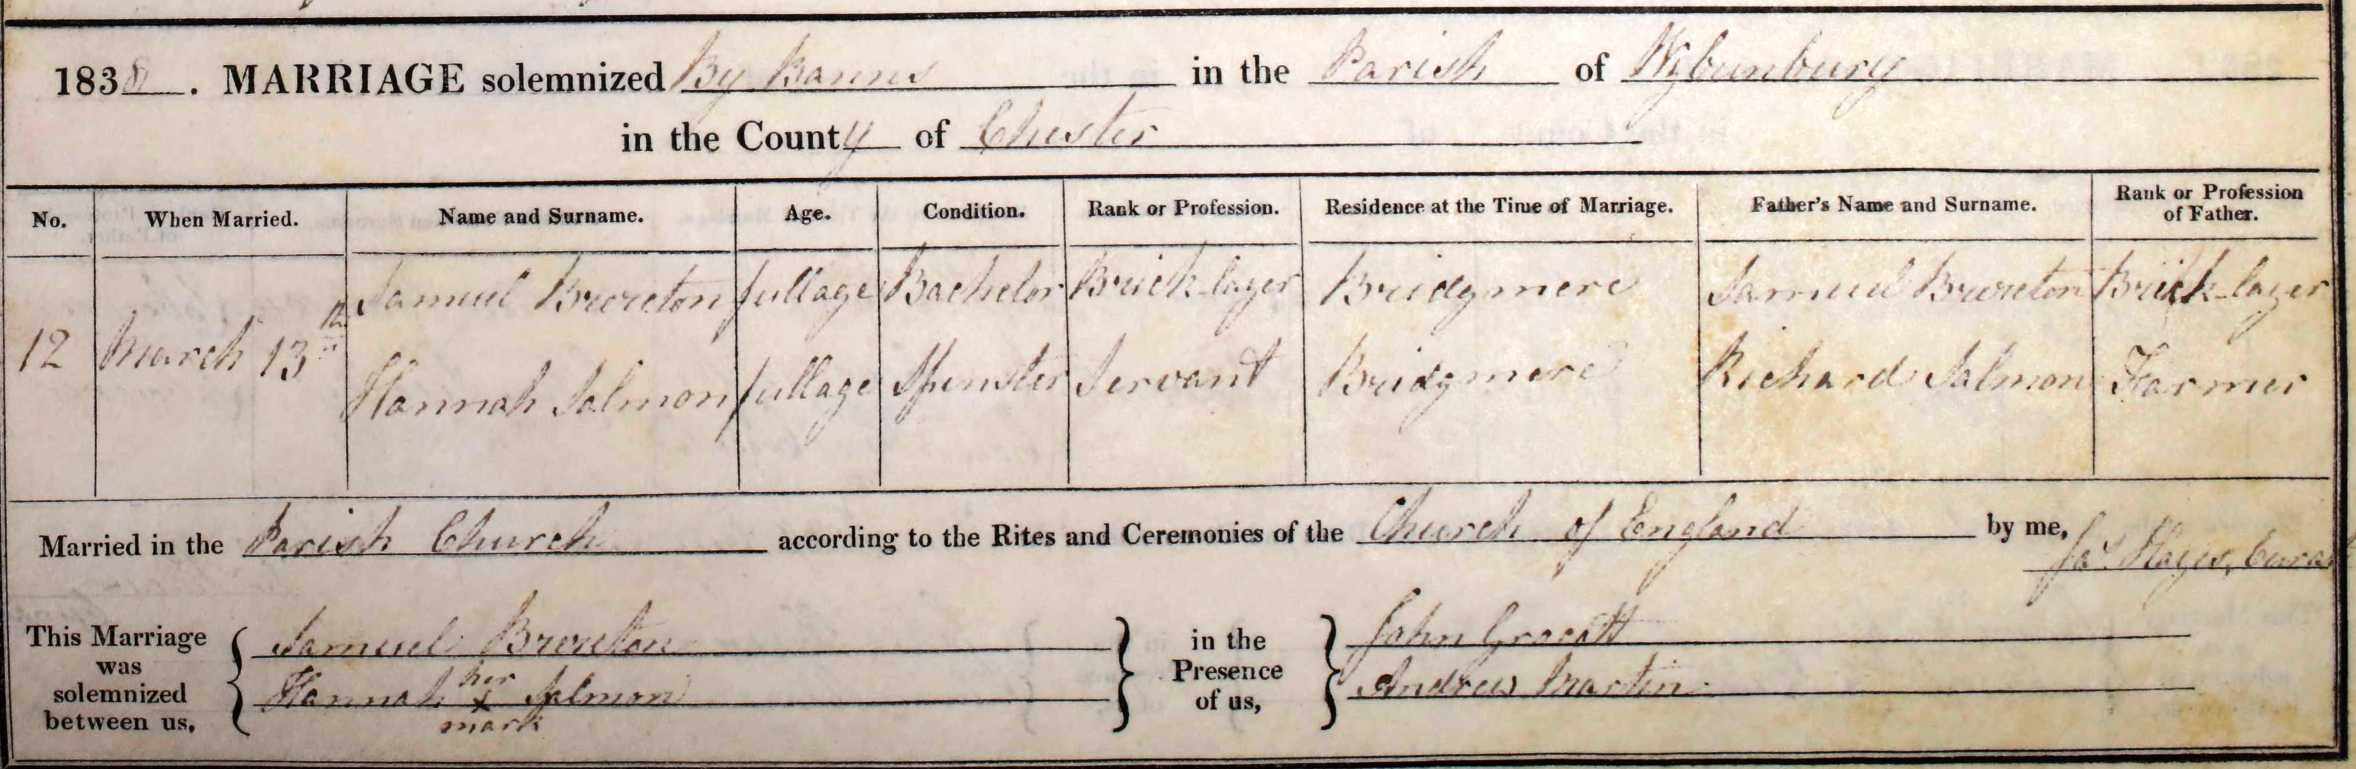 1838. MARRIAGE solemnized By Banns in the Parish of Wybunbury
in the County of Chester
No. When Married. Name and Surname. Age. Condition. Rank or Profession. Residence at the Time of Marriage. Father's Name and Surname. Rank or Profession of Father.
Samuel Brereton full age Bachelor Brick-layer Bridgmere Samuel Brereton Brick-layer
12 March 13th
Hannah Salmon full age Spinster Servant Bridgmere Richard Salmon Farmer
Married in the Parish Church according to the Rites and Ceremonies of the Church of England by me, Jas. Hayes, Curate
This Marriage was solemnized between us, Samuel Brereton in the Presence of us, John Grocott
Hannah her x mark Salmon Andrew Martin